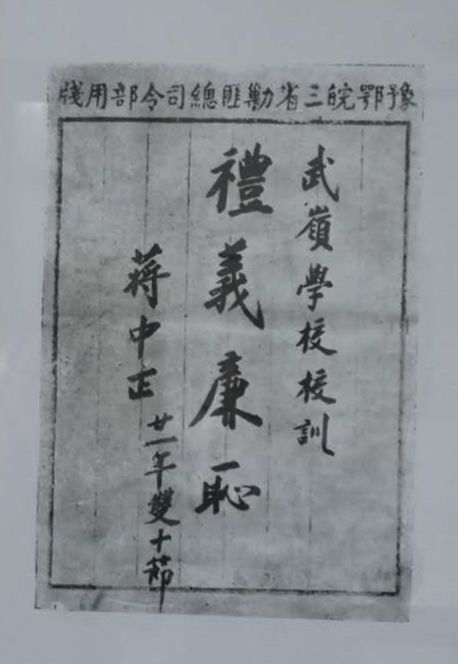 豫鄂皖三省勦匪總司令部用牋
武嶺學校校訓
禮義廉恥
蔣中正
廿一年雙十節